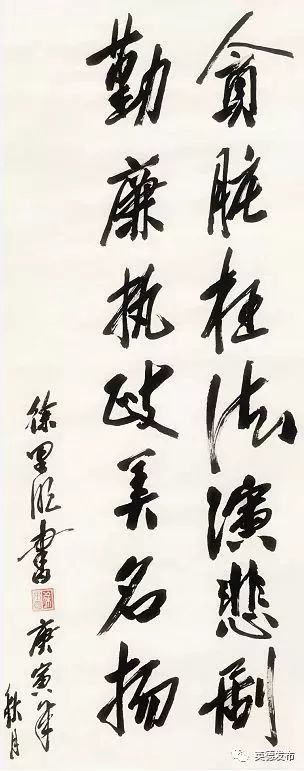 贪脏枉法演悲剧
勤廉执政美名扬
徐里
书
庚寅年
秋月
英德发布